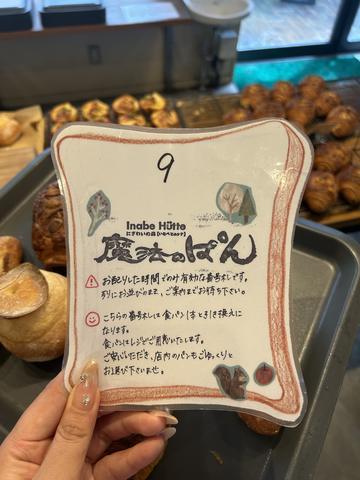 9
Inabe Hütte
にぎわいの森
魔法のぱん
お配りした時間でのみ有効な番号札です。
列にお並びのまま、ご案内までお待ち下さい。
こちらの番号札は食パン引き換えに
なります。
食パンはレジでご用意いたします。
ご安心いただき、店内のパンもごゆっくりと
お選び下さいませ。